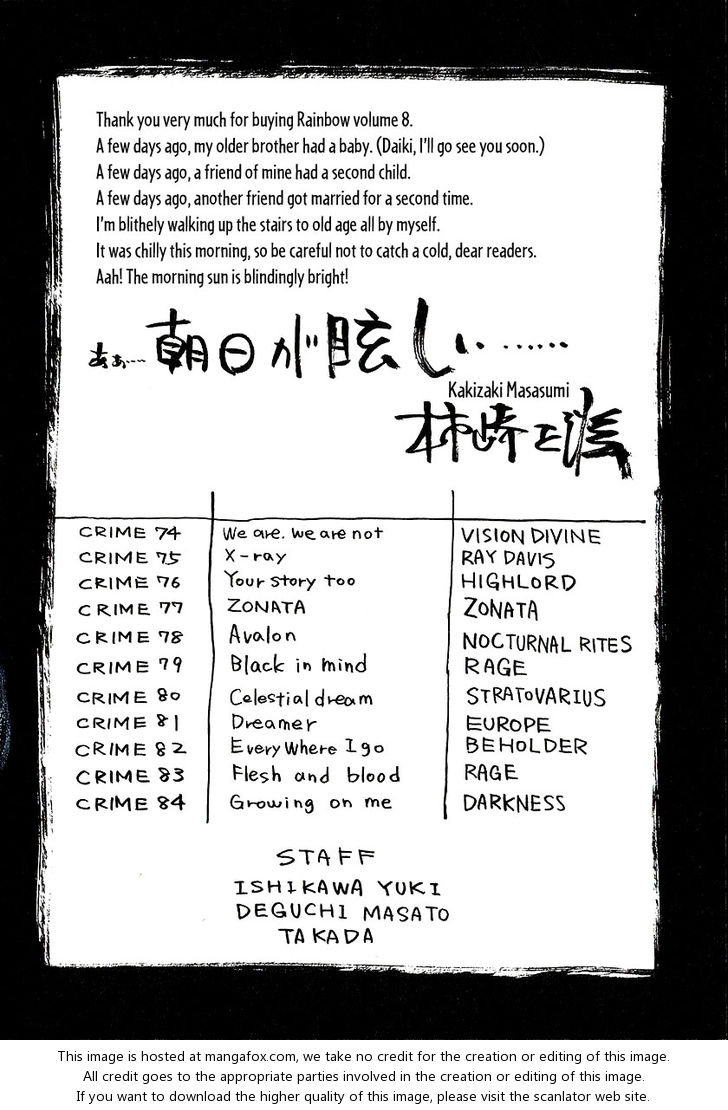 Thank you very much for buying Rainbow volume 8.
A few days ago, my older brother had a baby. (Daiki, I'll go see you soon.)
A few days ago, a friend of mine had a second child.
A few days ago, another friend got married for a second time.
I'm blithely walking up the stairs to old age all by myself.
It was chilly this morning, so be careful not to catch a cold, dear readers.
Aah! The morning sun is blindingly bright!
あぁ…朝日が眩しい……
Kakizaki Masasumi
柿崎正澄
CRIME 74 We are. we are not VISION DIVINE
CRIME 75 X-ray RAY DAVIS
CRIME 76 Your story too HIGHLORD
CRIME 77 ZONATA ZONATA
CRIME 78 Avalon NOCTURNAL RITES
CRIME 79 Black in mind RAGE
CRIME 80 Celestial dream STRATOVARIUS
CRIME 81 Dreamer EUROPE
CRIME 82 Every Where I go BEHOLDER
CRIME 83 Flesh and blood RAGE
CRIME 84 Growing on me DARKNESS
STAFF
ISHIKAWA YUKI
DEGUCHI MASATO
TAKADA
This image is hosted at mangafox.com, we take no credit for the creation or editing of this image.
All credit goes to the appropriate parties involved in the creation or editing of this image.
If you want to download the higher quality of this image, please visit the scanlator web site.